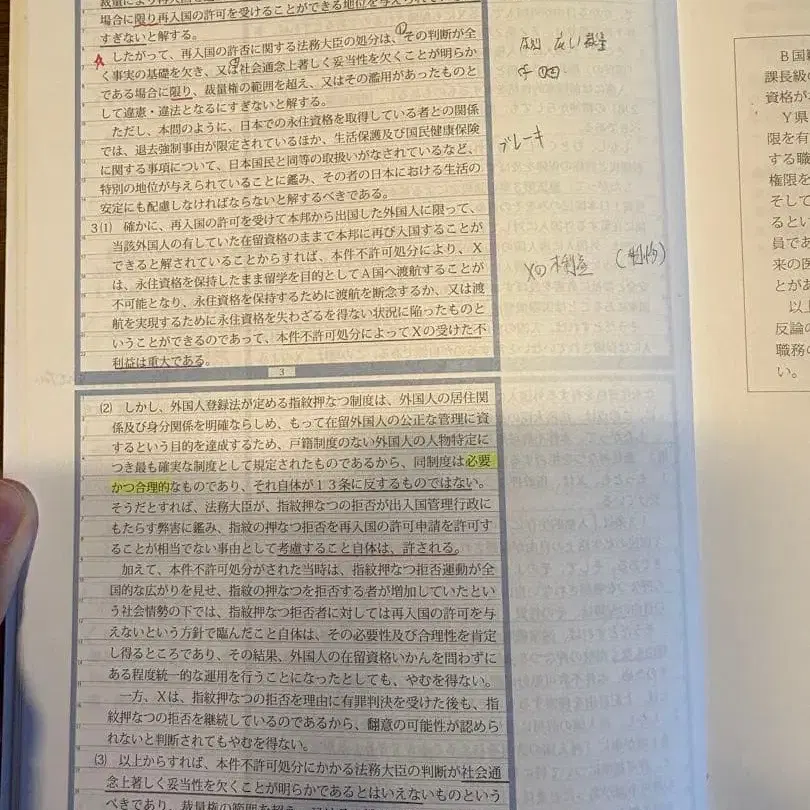 場合に限り再入国の許可を受けることができる地位を与えられている
すぎないと解する。
したがって、再入国の許否に関する法務大臣の処分は、①その判断が全
く事実の基礎を欠き、又は社会通念上著しく妥当性を欠くことが明らか
である場合に限り、裁量権の範囲を超え、又はその濫用があったものと
して違憲・違法となるにすぎないと解する。
ただし、本問のように、日本での永住資格を取得している者との関係
では、退去強制事由が限定されているほか、生活保護及び国民健康保険
に関する事項について、日本国民と同等の取扱いがなされているなど、
特別の地位が与えられていることに鑑み、その者の日本における生活の
安定にも配慮しなければならないと解するべきである。
3⑴ 確かに、再入国の許可を受けて本邦から出国した外国人に限って、
当該外国人の有していた在留資格のままで本邦に再び入国することが
できると解されていることからすれば、本件不許可処分により、X
は、永住資格を保持したまま留学を目的としてA国へ渡航することが
不可能となり、永住資格を保持するために渡航を断念するか、又は渡
航を実現するために永住資格を失わざるを得ない状況に陥ったものと
いうことができるのであって、本件不許可処分によってXの受けた不
利益は重大である。
3
⑵ しかし、外国人登録法が定める指紋押なつ制度は、外国人の居住関
係及び身分関係を明確ならしめ、もって在留外国人の公正な管理に資
するという目的を達成するため、戸籍制度のない外国人の人物特定に
つき最も確実な制度として規定されたものであるから、同制度は必要
かつ合理的なものであり、それ自体が13条に反するものではない。
そうだとすれば、法務大臣が、指紋押なつの拒否が出入国管理行政に
もたらす弊害に鑑み、指紋の押なつ拒否を再入国の許可申請を許可す
ることが相当でない事由として考慮すること自体は、許される。
加えて、本件不許可処分がされた当時は、指紋押なつ拒否運動が全
国的な広がりを見せ、指紋の押なつを拒否する者が増加していたとい
う社会情勢の下では、指紋押なつ拒否者に対しては再入国の許可を与
えないという方針で臨んだこと自体は、その必要性及び合理性を肯定
し得るところであり、その結果、外国人の在留資格いかんを問わずに
ある程度統一的な運用を行うことになったとしても、やむを得ない。
一方、Xは、指紋押なつの拒否を理由に有罪判決を受けた後も、指
紋押なつの拒否を継続しているのであるから、翻意の可能性が認めら
れないと判断されてもやむを得ない。
⑶ 以上からすれば、本件不許可処分にかかる法務大臣の判断が社会通
念上著しく妥当性を欠くことが明らかであるとはいえないものという
べきであり、裁量権の範囲を超え
ブレーキ
B国
課長級の
資格が
Y県
限を有
する職
権限を
そして
るとい
員であ
来の医
とがあ
以上
反論の
職務の
い。